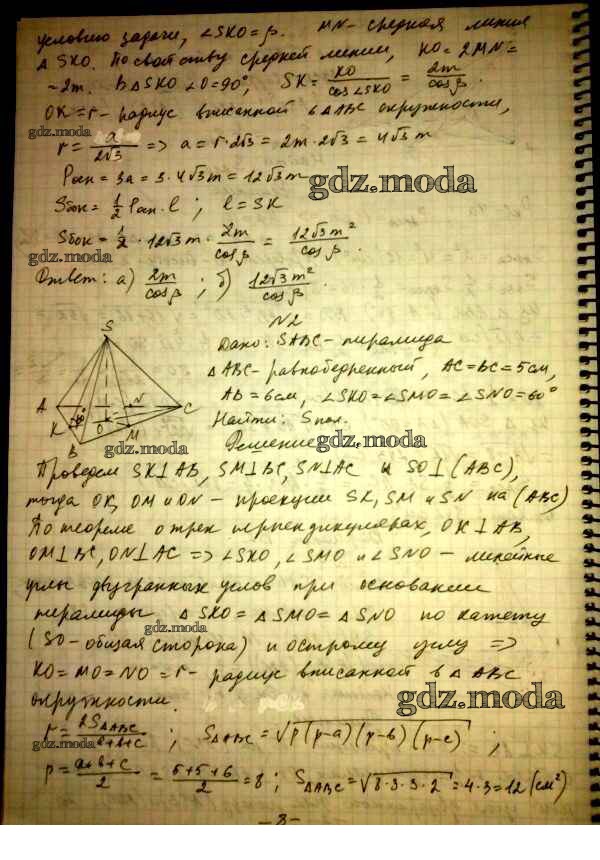 условию задачи, ∠SKO=β. MN- средная линия
△SKO. По свойству средней линии, KO=2MN=
=2m. В△SKO ∠O=90°, SK= KO/cos∠SKO = 2m/cosβ.
OK=r- радиус вписанной в△ABC окружности,
gdz.moda
r= a/2√3 => a=r·2√3=2m·2√3=4√3m
Pосн=3a=3·4√3m=12√3m
gdz.moda
Sбок=1/2 Pосн·l; l=SK
Sбок=1/2·12√3m·2m/cosβ = 12√3m²/cosβ.
gdz.moda
Ответ: а) 2m/cosβ; б) 12√3m²/cosβ.
N2
Дано: SABC- пирамида
△ABC- равнобедренный, AC=BC=5см,
AB=6см, ∠SKO=∠SMO=∠SNO=60°
Найти: Sпол.
S
A
N
C
K
60°
O
M
B
gdz.moda
Решение
gdz.moda
Проведем SK⊥AB, SM⊥BC, SN⊥AC и SO⊥(ABC),
тогда OK, OM и ON- проекции SK, SM и SN на (ABC)
По теореме о трех перпендикулярах, OK⊥AB,
OM⊥BC, ON⊥AC => ∠SKO, ∠SMO и ∠SNO- линейные
углы двугранных углов при основании
пирамиды △SKO=△SMO=△SNO по катету
gdz.moda
(SO- общая сторона) и острому углу =>
KO=MO=NO=r- радиус вписанной в△ABC
окружности.
gdz.moda
r= 2S△ABC/a+b+c; S△ABC=√p(p-a)(p-b)(p-c);
p= a+b+c/2 = 5+5+6/2 =8; S△ABC=√8·3·3·2=4·3=12(см²)
-8-